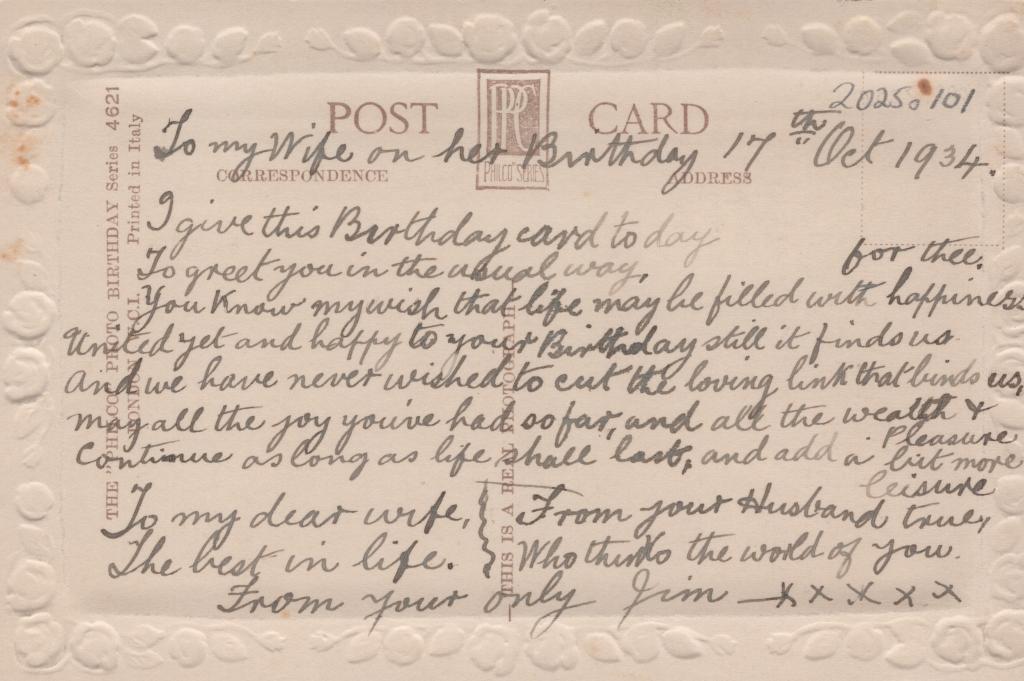 2025.101
POST CARD
PHILCO SERIES
CORRESPONDENCE
ADDRESS
THE "PHILCO" PHOTO BIRTHDAY Series 4621
LONDON, W.C.I. Printed in Italy
THIS IS A REAL PHOTOGRAPH
To my Wife on her Birthday 17th Oct 1934.
I give this Birthday card to day
To greet you in the usual way,
You know my wish that life may be filled with happiness for thee.
United yet and happy to your Birthday still it finds us
And we have never wished to cut the loving link that binds us,
May all the joy you've had so far, and all the wealth & Pleasure
Continue as long as life shall last, and add a bit more leisure
To my dear wife,
The best in life.
From your Husband true,
Who thinks the world of you.
From your only Jim — x x x x x